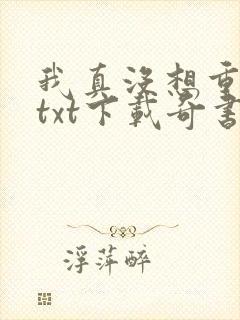 我真没想重
txt下载奇书
浮萍醉